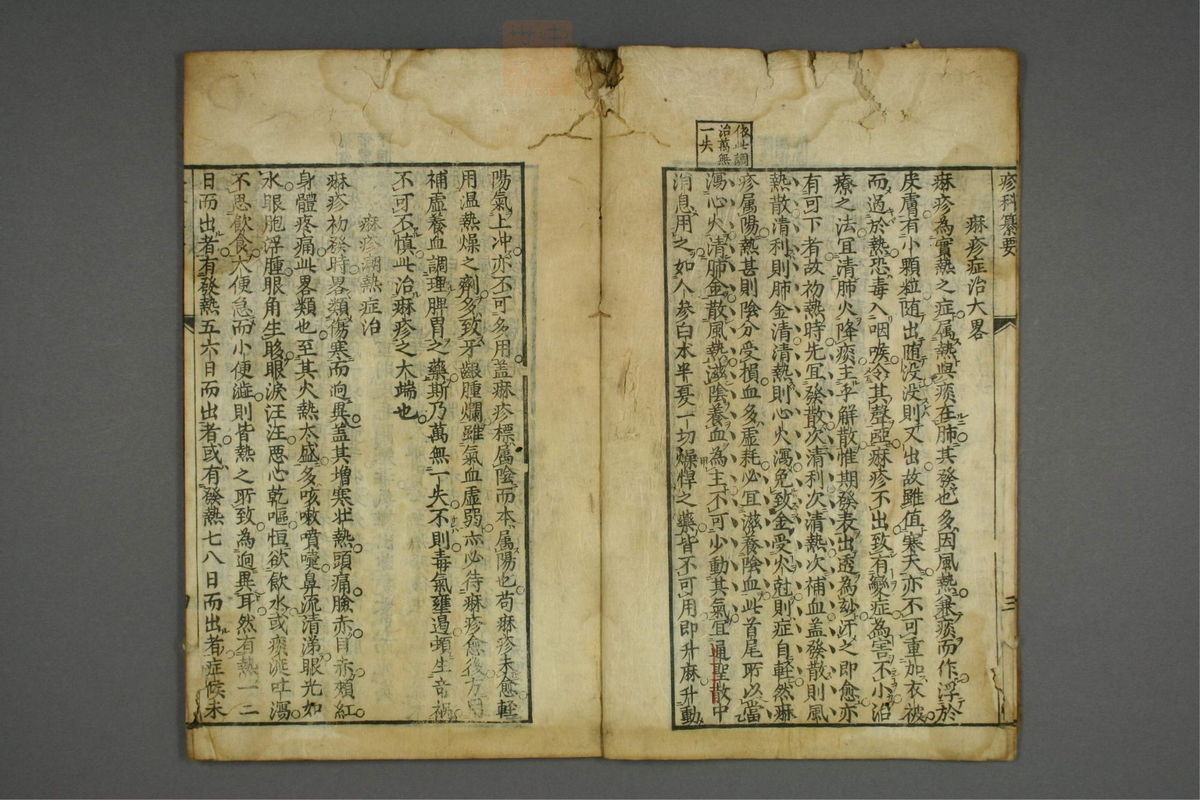 疹科纂要
三
依此調
治萬無
一失
痳疹症治大畧
痳疹為實熱之症属熱與痰在肺其發也多因風熱兼痰而作浮於
皮膚有小顆粒随出随没没則又出故雖值寒天亦不可重加衣被
而過於熱恐毒入咽喉令其聲啞痳疹不出致有變症為害不小治
療之法宜清肺火降痰主乎解散惟期發表出透為玅汗之即愈亦
有可下者故初熱時先宜發散次清利次清熱次補血盖發散則風
熱散清利則肺金清清熱則心火瀉免致金受火尅則症自軽然痳
疹属陽熱甚則陰分受損血多虚耗必宜滋養陰血此首尾所以當
瀉心火清肺金散風熱滋陰養血為主不可少動其氣宜通聖散中
消息用之如人參白朮半夏一切燥悍之藥皆不可用即升麻升動
陽氣上冲亦不可多用盖痳疹標属陰而本属陽也苟痳疹未愈輕
用温熱燥之劑多致牙齦腫爛雖氣血虚弱亦必待痳疹愈後方用
補虚養血調理脾胃之藥斯乃萬無一失不則毒氣壅遏頓生竒禍
不可不慎此治痳疹之大端也
痳疹潮熱症治
痳疹初發時畧類傷寒而逈異盖其增寒壮熱頭痛臉赤目赤頰紅
身體疼痛此畧類也至其火熱太盛多咳嗽噴嚏鼻流清涕眼光如
水眼胞浮腫眼角生眵眼淚汪汪悪心乾嘔恒欲飲水或痰涎吐瀉
不思飲食大便急而小便澁則皆熱之所致為逈異耳然有熱一二
日而出者有發熱五六日而出者或有發熱七八日而出者症候未